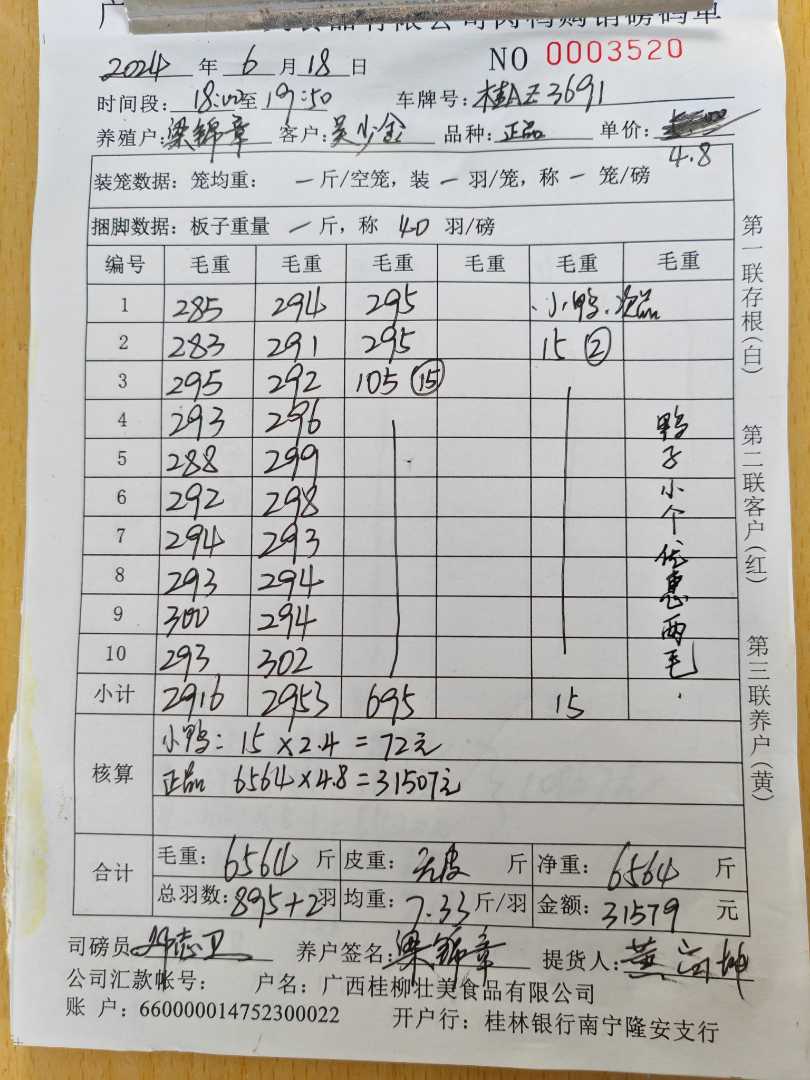 食品有限公司肉鸭购销磅码单
NO 0003520
2024 年 6 月 18 日
时间段: 18:00至19:50 车牌号: 桂AZ3691
养殖户: 梁锦章 客户: 吴少金 品种: 正品 单价:
4.8
装笼数据: 笼均重: 一 斤/空笼, 装 一 羽/笼, 称 一 笼/磅
捆脚数据: 板子重量 一 斤, 称 40 羽/磅
编号 毛重 毛重 毛重 毛重 毛重 毛重
1 285 294 295 小鸭、次品
2 283 291 295 15 ②
3 295 292 105 ⑮
4 293 296
5 288 299
6 292 298
7 294 293
8 293 294
9 300 294
10 293 302
鸭子小个优惠两毛.
小计 2916 2953 695 15
核算 小鸭: 15×2.4=72元
正品 6564×4.8=31507元
合计 毛重: 6564 斤 皮重: 无皮 斤 净重: 6564 斤
总羽数: 895+2羽 均重: 7.33 斤/羽 金额: 31579 元
司磅员 志卫 养户签名: 梁锦章 提货人: 黄
公司汇款帐号: 户名: 广西桂柳壮美食品有限公司
账 户: 660000014752300022 开户行: 桂林银行南宁隆安支行
第一联存根(白)
第二联客户(红)
第三联养户(黄)